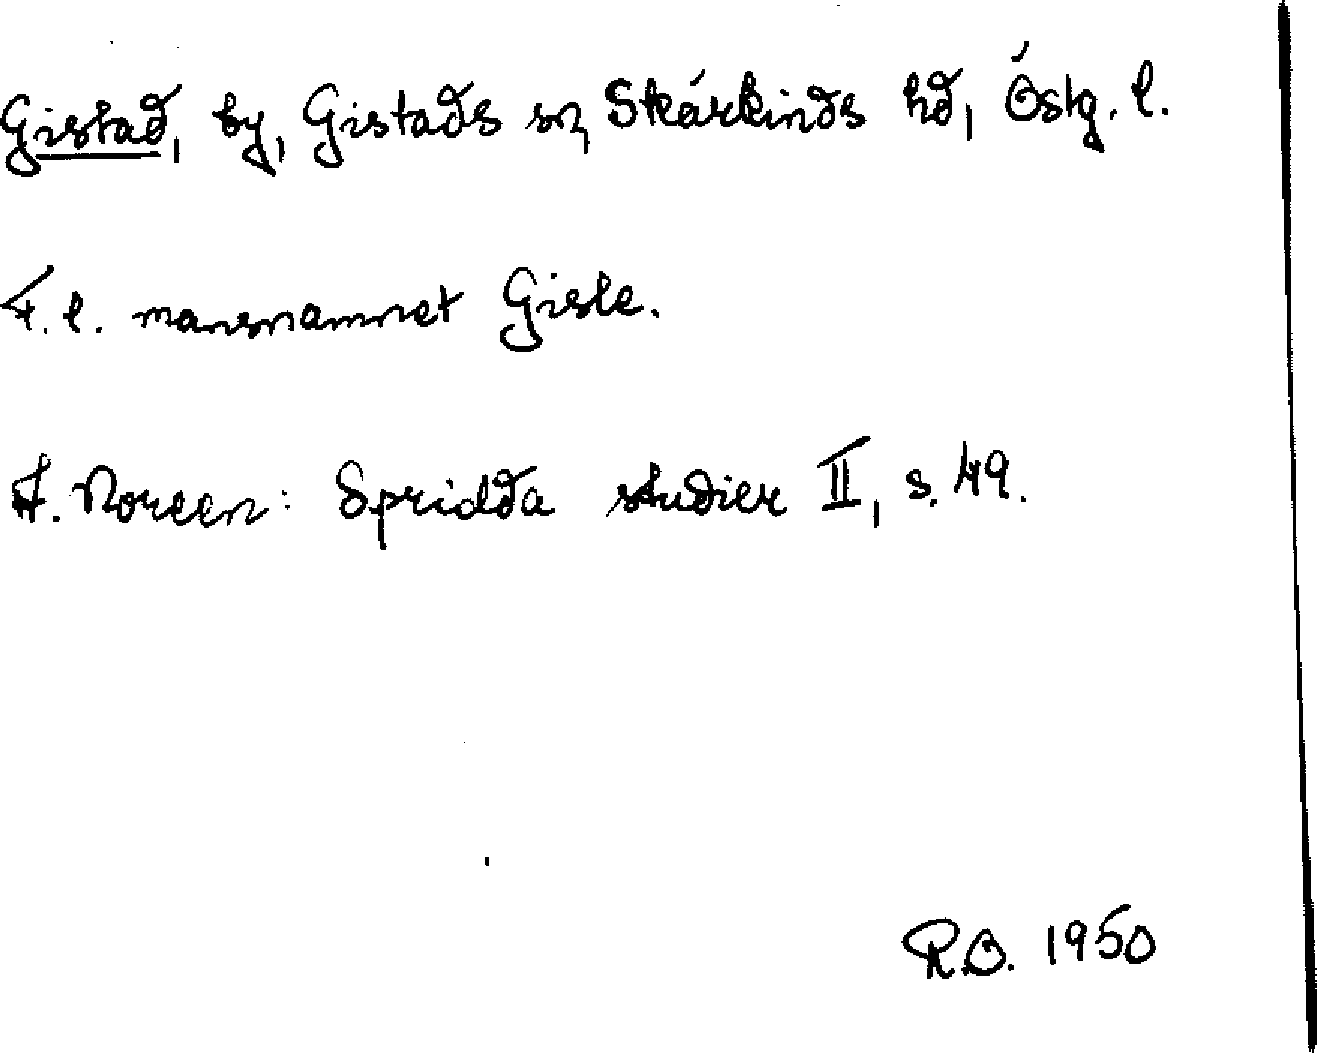 Gistad, by, Gistads sn, Skärkinds hd, Östg. l.
F. l. mansnamnet Gisle.
A. Noreen: Spridda studier II, s. 49.
R.O. 1950